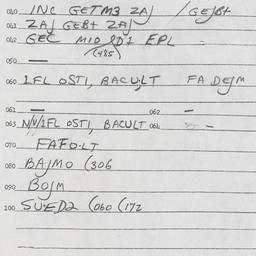 010 INC GETM3 ZAJ / GEJB+
011 ZAJ GEB+ ZAJ
042 GEC M10 8D1 EPL
(485)
050 —
060 1FL OSTI, BACULT FA DEJM
061 — 062 —
063 N/V/1FL OSTI, BACULT 064 —
070 FAFO·LT
080 BAJMO (306
090 BOJM
100 SUED2 (060 (172